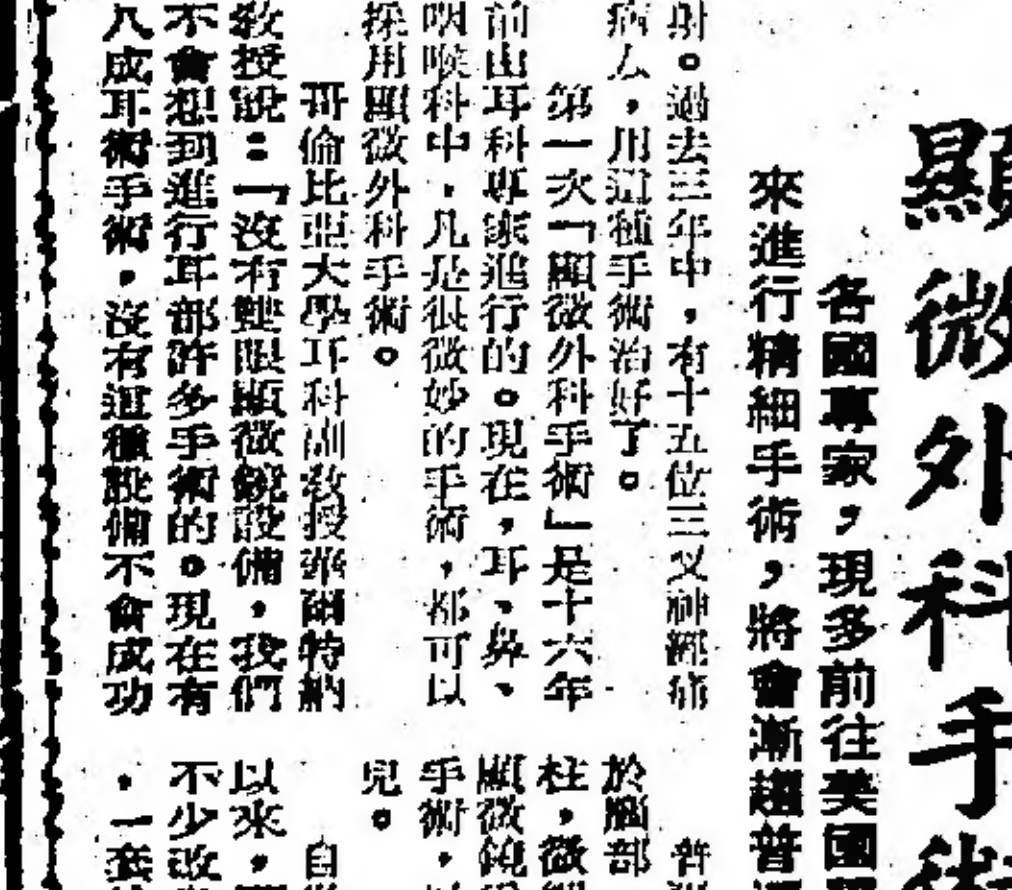 顯微外科手術
各國專家，現多前往美國
來進行精細手術，將會漸趨普
射。過去三年中，有十五位三叉神經痛
病人，用這種手術治好了。
第一次「顯微外科手術」是十六年
前由耳科專家進行的。現在，耳、鼻、
咽喉科中，凡是很微妙的手術，都可以
採用顯微外科手術。
哥倫比亞大學耳科副教授 爾特納
教授說：「沒有雙眼顯微鏡設備，我們
不會想到進行耳部許多手術的。現在有
八成耳術手術，沒有這種設備不會成功
於腦部
柱，微
顯微鏡
手術，
兒。
自
以來，
不少改
，一套